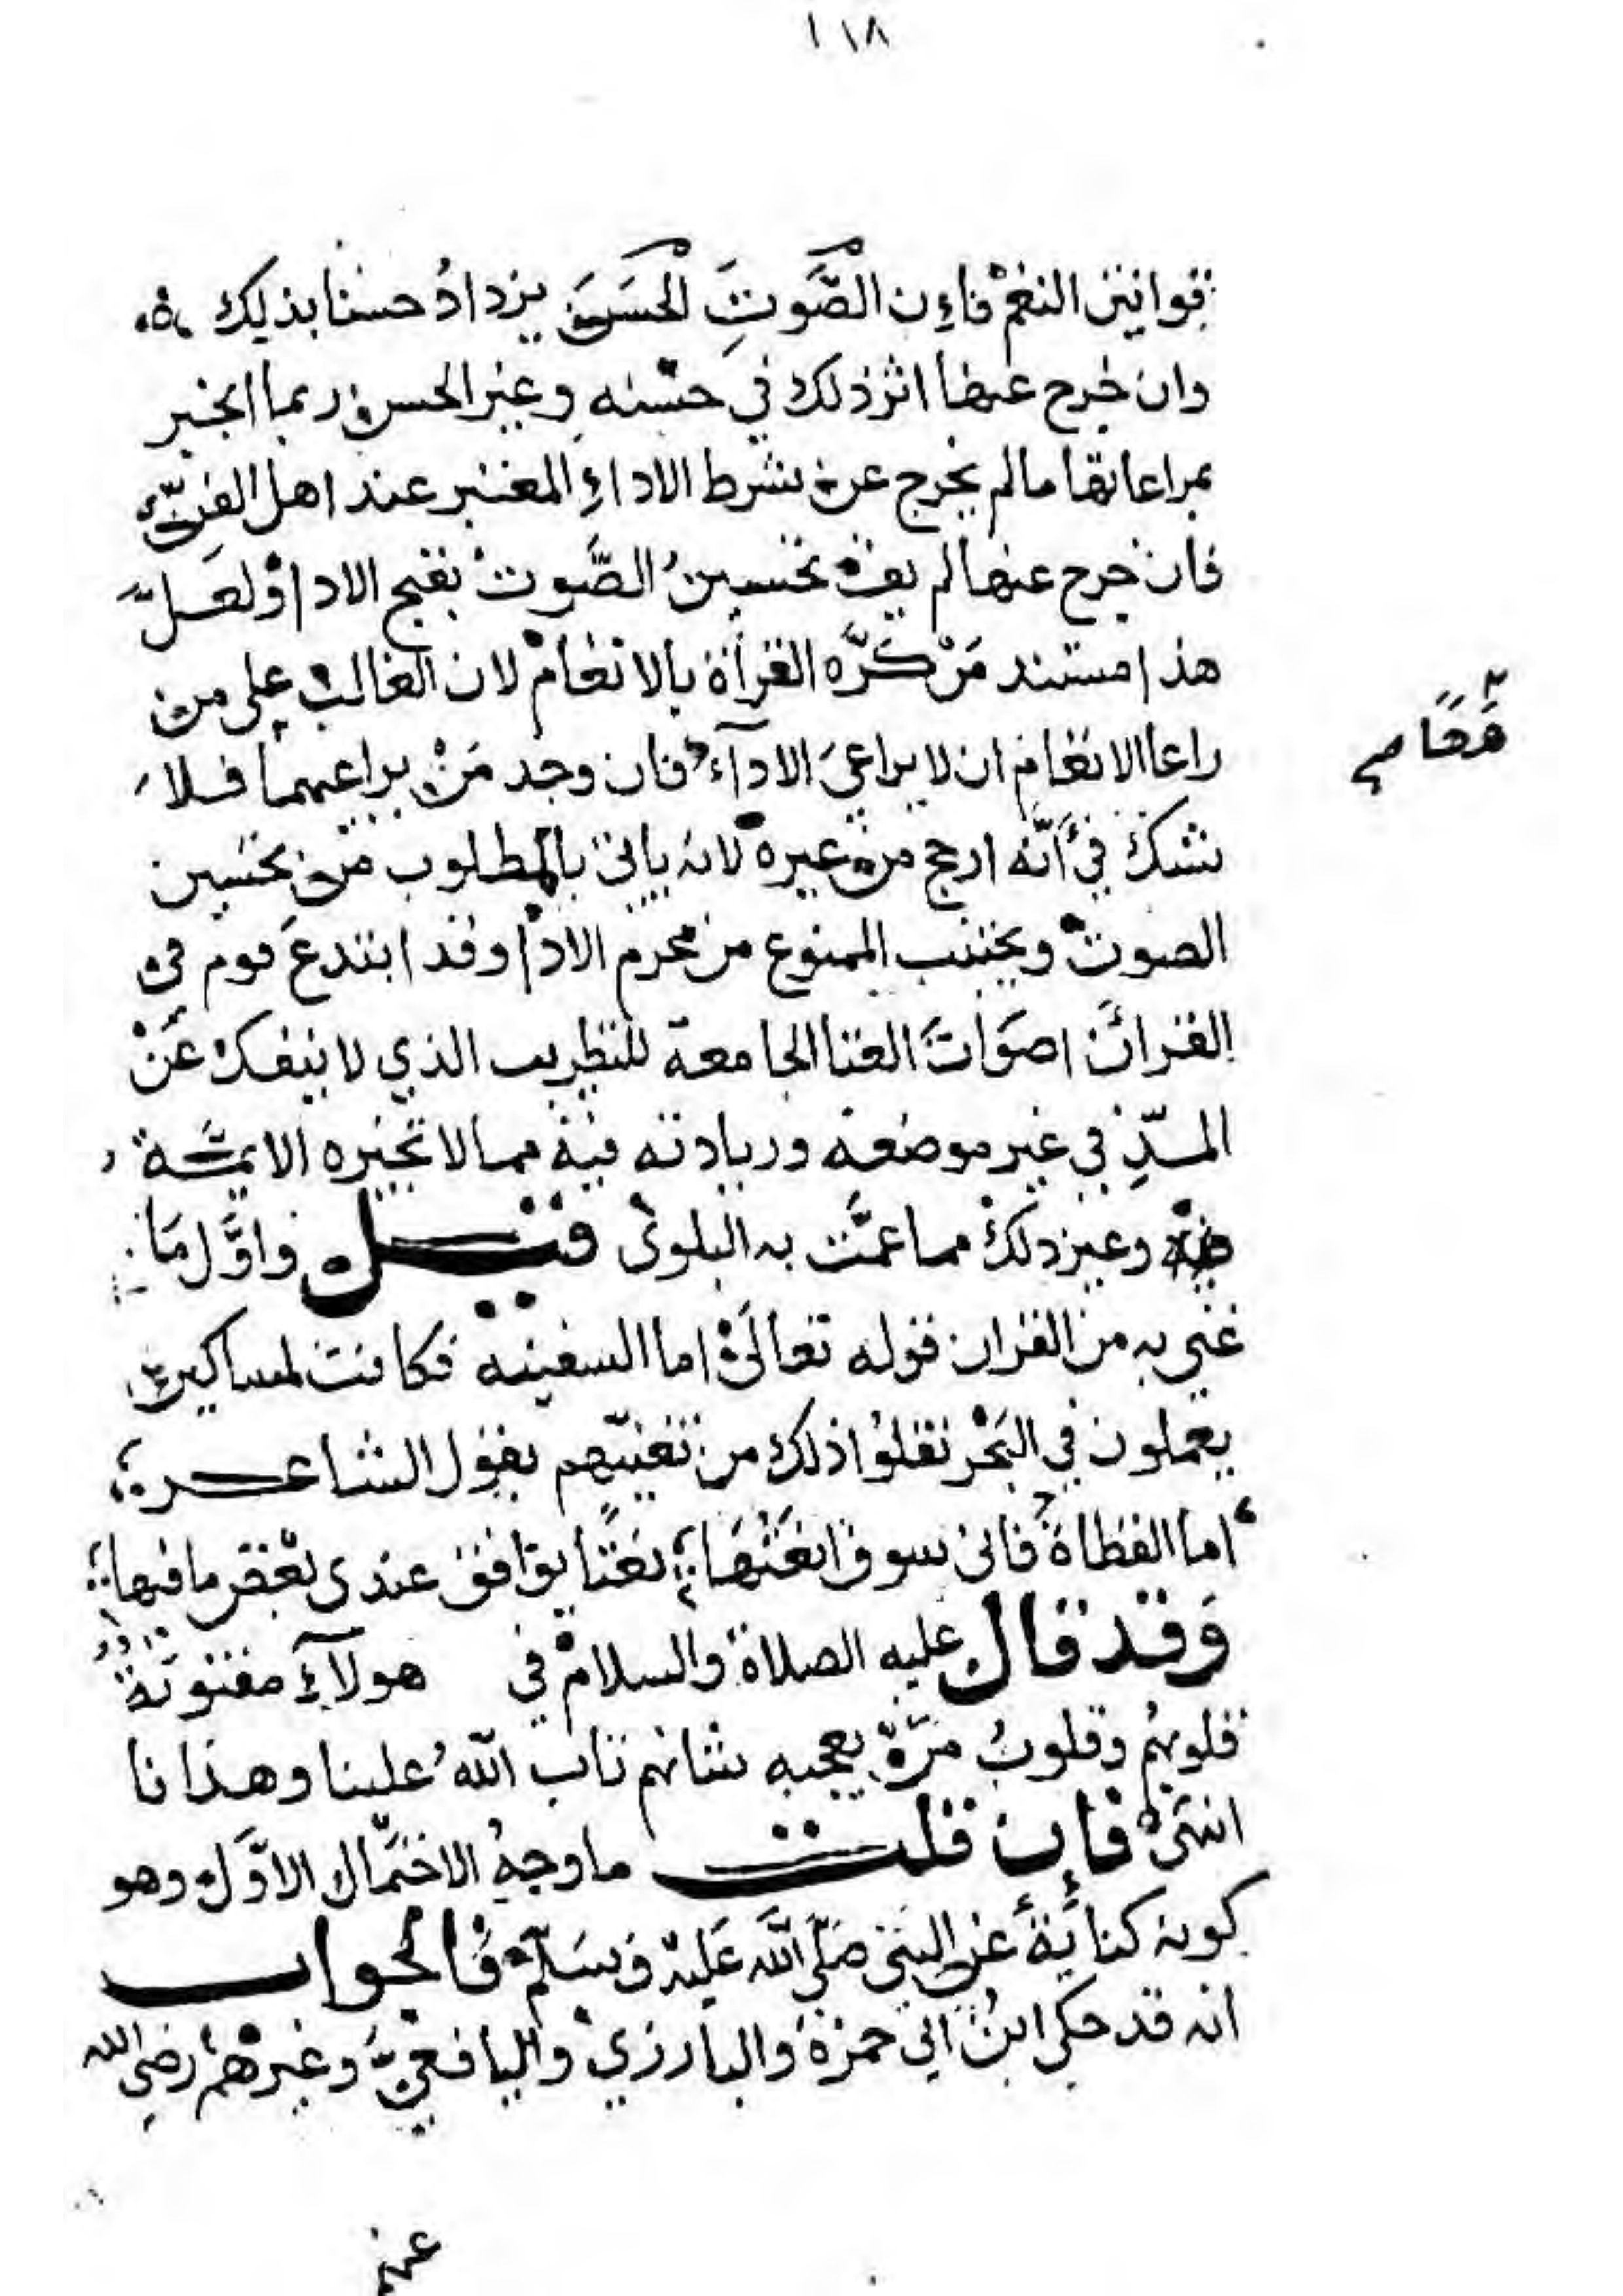 ١١٨
بقوانين النغم فاءن الصَّوتَ الحَسَن يزدادُ حسنا بذلك
وان خرج عنها اثر ذلك في حسْنه وغير الحسن ربما انجبر
بمراعاتها ما لم يخرج عن شرط الاداءِ المعتبر عند اهل الفن
فان خرج عنها لم يف تحسينُ الصَّوت بقبح الادا ولعلَّ
هذا مستند مَنْ كَرَّه القرأة بالانغام لان الغالب على من
راعا الانغام ان لا يراعىَ الادآء فان وجد مَنْ يراعيهما فلا
شك في أنّه ارجح من غيره لانه ياتى بالمطلوب من تحسين
الصوت ويجتنب الممنوع من محرم الادا وقد ابتدعَ قوم فى
القرأن اصوَاتَ الغنا الجامعة للتطريب الذي لا ينفك عَنْ
المدِّ في غير موضعه وزيادته فيه مما لا تجيزه الايمَّة
وغير ذلك مما عمَّت به البلوى قيل واوَّل مَا
غني به من القران قوله تعالَى اما السفينه فكانت لمساكين
يعملون في البَحْر نقلوُا ذلك من تغنيّهم بقول الشاعر
اما القطاة فانى سوف انعَتُهَا نعتًا يوافق عندى بعض ما فيها
وَقد قال عليه الصلاة والسلام في هولآءِ مفتونَة
قلوبهُم وقلوبُ مَنْ يعجبه شانهم تاب اللهُ علينا وهذانا
انتهى فاءن قلت ما وجهُ الاحتمال الاوَّل وهو
كونه كنايَةً عن النبى صَلّى اللَّه عَليْه وَسَلّم فَالجواب
انه قد حكى ابنُ ابي حمزة والبارزي واليافعيُّ وغيرهم رضي الله
عنهم